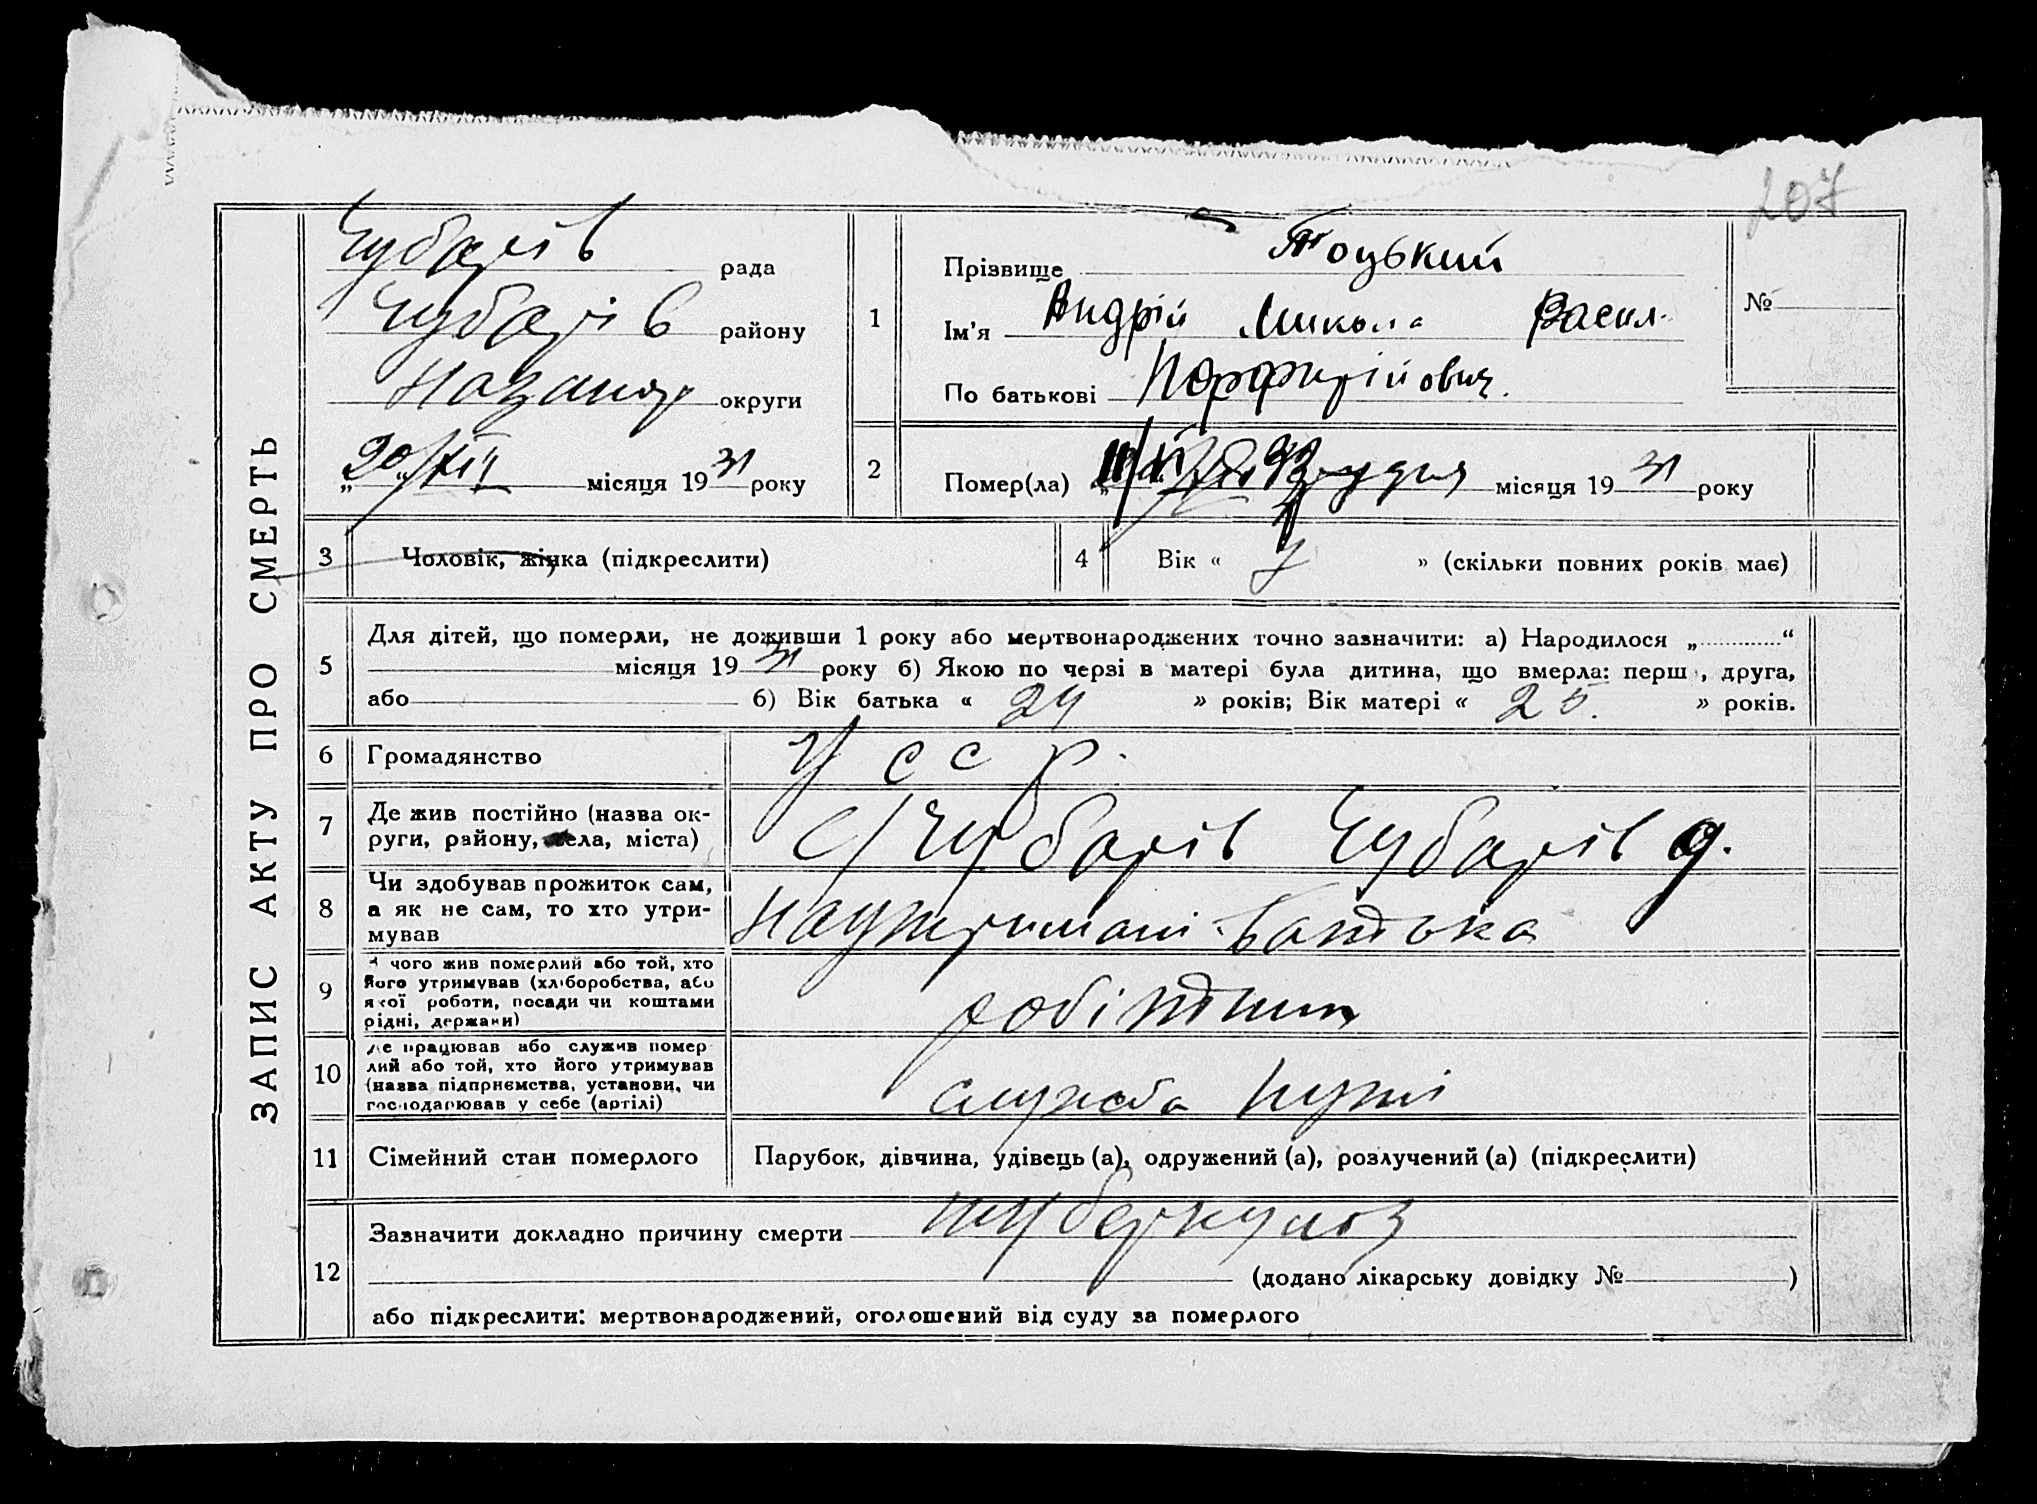 207
ЗАПИС АКТУ ПРО СМЕРТЬ
Чубарів рада
Чубарів району
округи
„20“ XII місяця 1931 року
1 Прізвище Тоцький
Ім’я Андрій Микола Васил.
По батькові Порфирійович.
№
2 Помер(ла) грудня місяця 1931 року
3 Чоловік, жінка (підкреслити)
4 Вік « » (скільки повних років має)
5 Для дітей, що померли, не доживши 1 року або мертвонароджених точно зазначити: а) Народилося „ “
місяця 1931 року б) Якою по черзі в матері була дитина, що вмерла: перш , друга,
або б) Вік батька « 24 » років; Вік матері « 25. » років.
6 Громадянство УССР.
7 Де жив постійно (назва ок-
руги, району, села, міста) с/Чубарів Чубарів
8 Чи здобував прожиток сам,
а як не сам, то хто утри-
мував
На утримані батька
9 чого жив померлий або той, хто
його утримував (хліборобства, або
якої роботи, посади чи коштами
рідні, держави)
робітник
10 де працював або служив помер
лий або той, хто його утримував
(назва підприємства, установи, чи
господарював у себе (артілі)
служба путі
11 Сімейний стан померлого Парубок, дівчина, удівець (а), одружений (а), розлучений (а) (підкреслити)
12 Зазначити докладно причину смерти туберкульоз
(додано лікарську довідку № )
або підкреслити: мертвонароджений, оголошений від суду за померлого